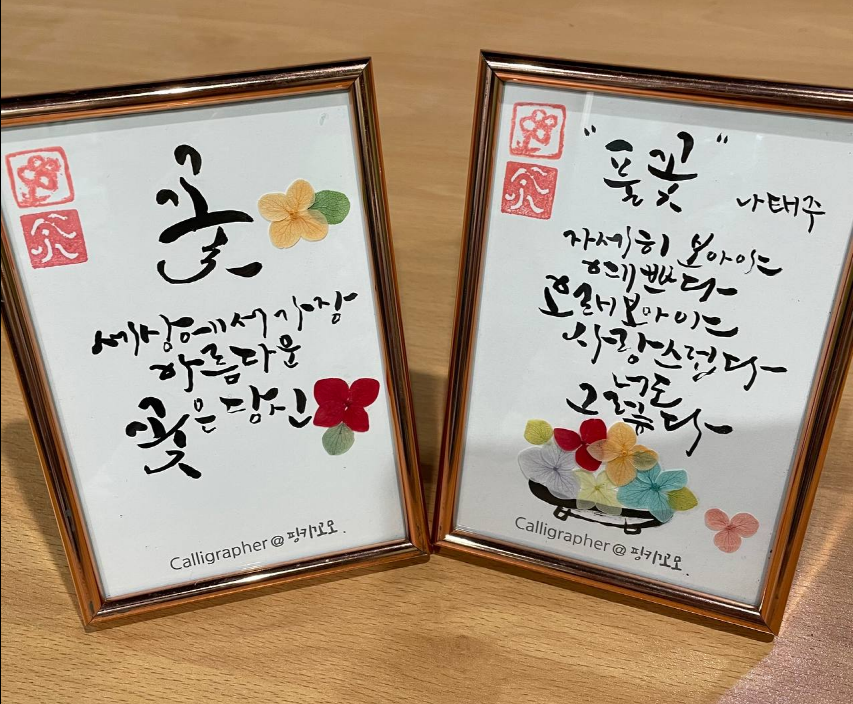 꽃
세상에서 가장
아름다운
꽃은 당신
Calligrapher@핑키고모.
"풀꽃"
나태주
자세히 보아야
예쁘다
오래보아야
사랑스럽다
너도
그렇다
Calligrapher@핑키고모.